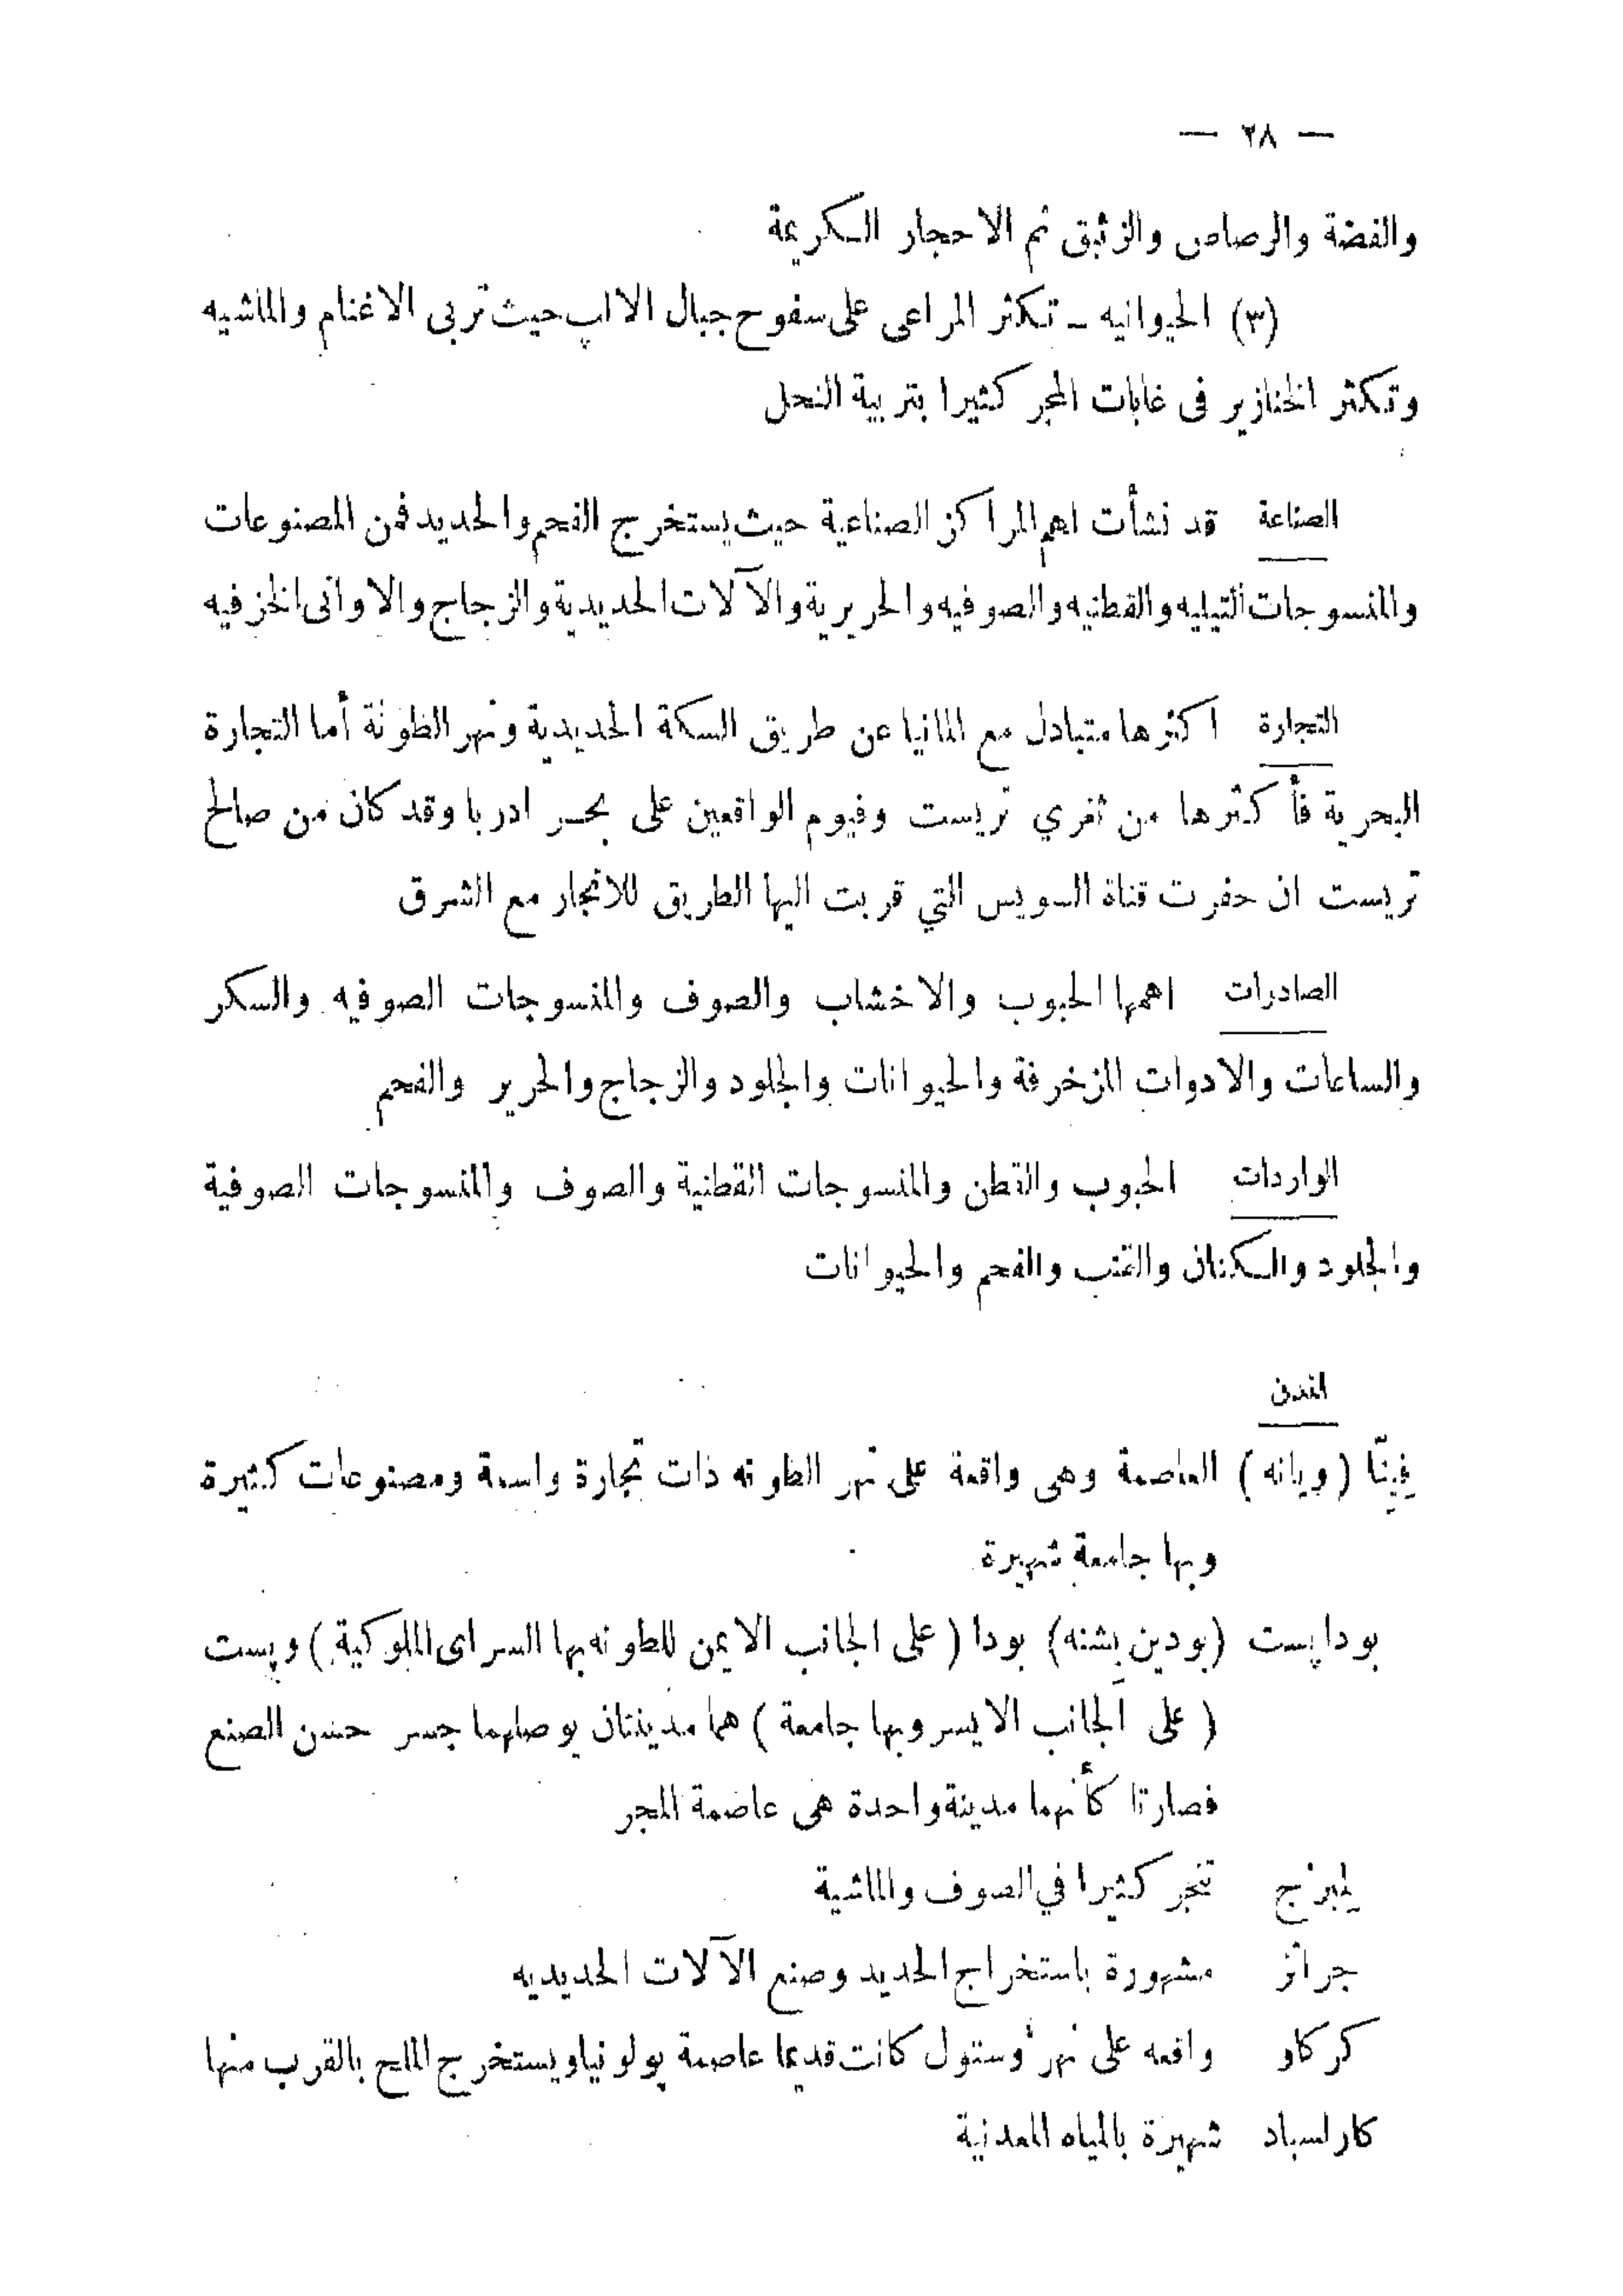 — ٢٨ —
والفضة والرصاص والزئبق ثم الاحجار الكريمة
(٣) الحيوانيه – تكثر المراعى على سفوح جبال الالپ حيث تربى الاغنام والماشيه
وتكثر الخنازير فى غابات المجر كثيرا بتربية النحل
الصناعة قد نشأت اهم المراكز الصناعية حيث يستخرج الفحم والحديد فمن المصنوعات
والمنسوجات التيليه والقطنيه والصوفيه والحريرية والآلات الحديدية والزجاج والاوانى الخزفيه
التجارة اكثرها متبادل مع المانيا عن طريق السكة الحديدية ونهر الطونة أما التجارة
البحرية فأكثرها من ثغري تريست وفيوم الواقعين على بحر ادريا وقد كان من صالح
تريست ان حفرت قناة السويس التي قربت اليها الطريق للاتجار مع الشرق
الصادرات اهمها الحبوب والاخشاب والصوف والمنسوجات الصوفيه والسكر
والساعات والادوات المزخرفة والحيوانات والجلود والزجاج والحرير والفحم
الواردات الحبوب والقطن والمنسوجات القطنية والصوف والمنسوجات الصوفية
والجلود والكتان والقنب والفحم والحيوانات
المدن
ڤِينّا (ويانه) العاصمة وهى واقعة على نهر الطونه ذات تجارة واسعة ومصنوعات كثيرة
وبها جامعة شهيرة
بوداپست (بودين پشته) بودا (على الجانب الايمن للطونه بها السراى الملوكية) وپست
(على الجانب الايسر وبها جامعة) هما مدينتان يوصلهما جسر حسن الصنع
فصارتا كأنهما مدينة واحدة هى عاصمة المجر
لِمبرْج تتجر كثيرا في الصوف والماشية
جراتز مشهورة باستخراج الحديد وصنع الآلات الحديديه
كركاو واقعه على نهر وستول كانت قديما عاصمة پولونيا ويستخرج الملح بالقرب منها
كارلسباد شهيرة بالمياه المعدنية